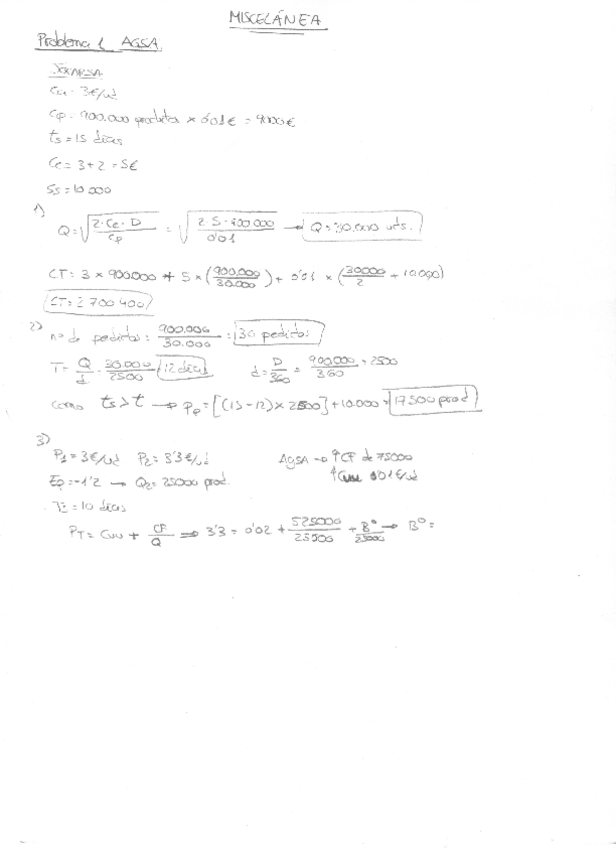 MISCELÁNEA
Problema 1 AGSA
Cu = 3€/ud
Cp = 900.000 productos × 0'01€ = 9000€
ts = 15 días
Ce = 3 + 2 = 5€
Ss = 10000
1)
Q = √(2·Ce·D / Cp) = √(2·5·900000 / 0'01) → Q = 30.000 uts.
CT = 3 × 900.000 + 5 × (900.000 / 30.000) + 0'01 × (30000 / 2 + 10.000)
CT = 2 700 400
2) nº de pedidos: 900.000 / 30.000 = 30 pedidos
T = Q / d = 30.000 / 2500 = 12 días d = D / 360 = 900.000 / 360 = 2500
como ts > t → Pp = [(15 - 12) × 2500] + 10.000 = 17500 prod
3)
P1 = 3€/ud P2 = 3'3€/ud AGSA → ↑CF de 75000
Ep = -1'2 → Q2 = 25000 prod. ↑Cuu 0'01€/ud
= 10 días
PT = Cuu + CF / Q ⇒ 3'3 = 0'02 + 525000 / 25500 + Bº / 25000 → Bº =